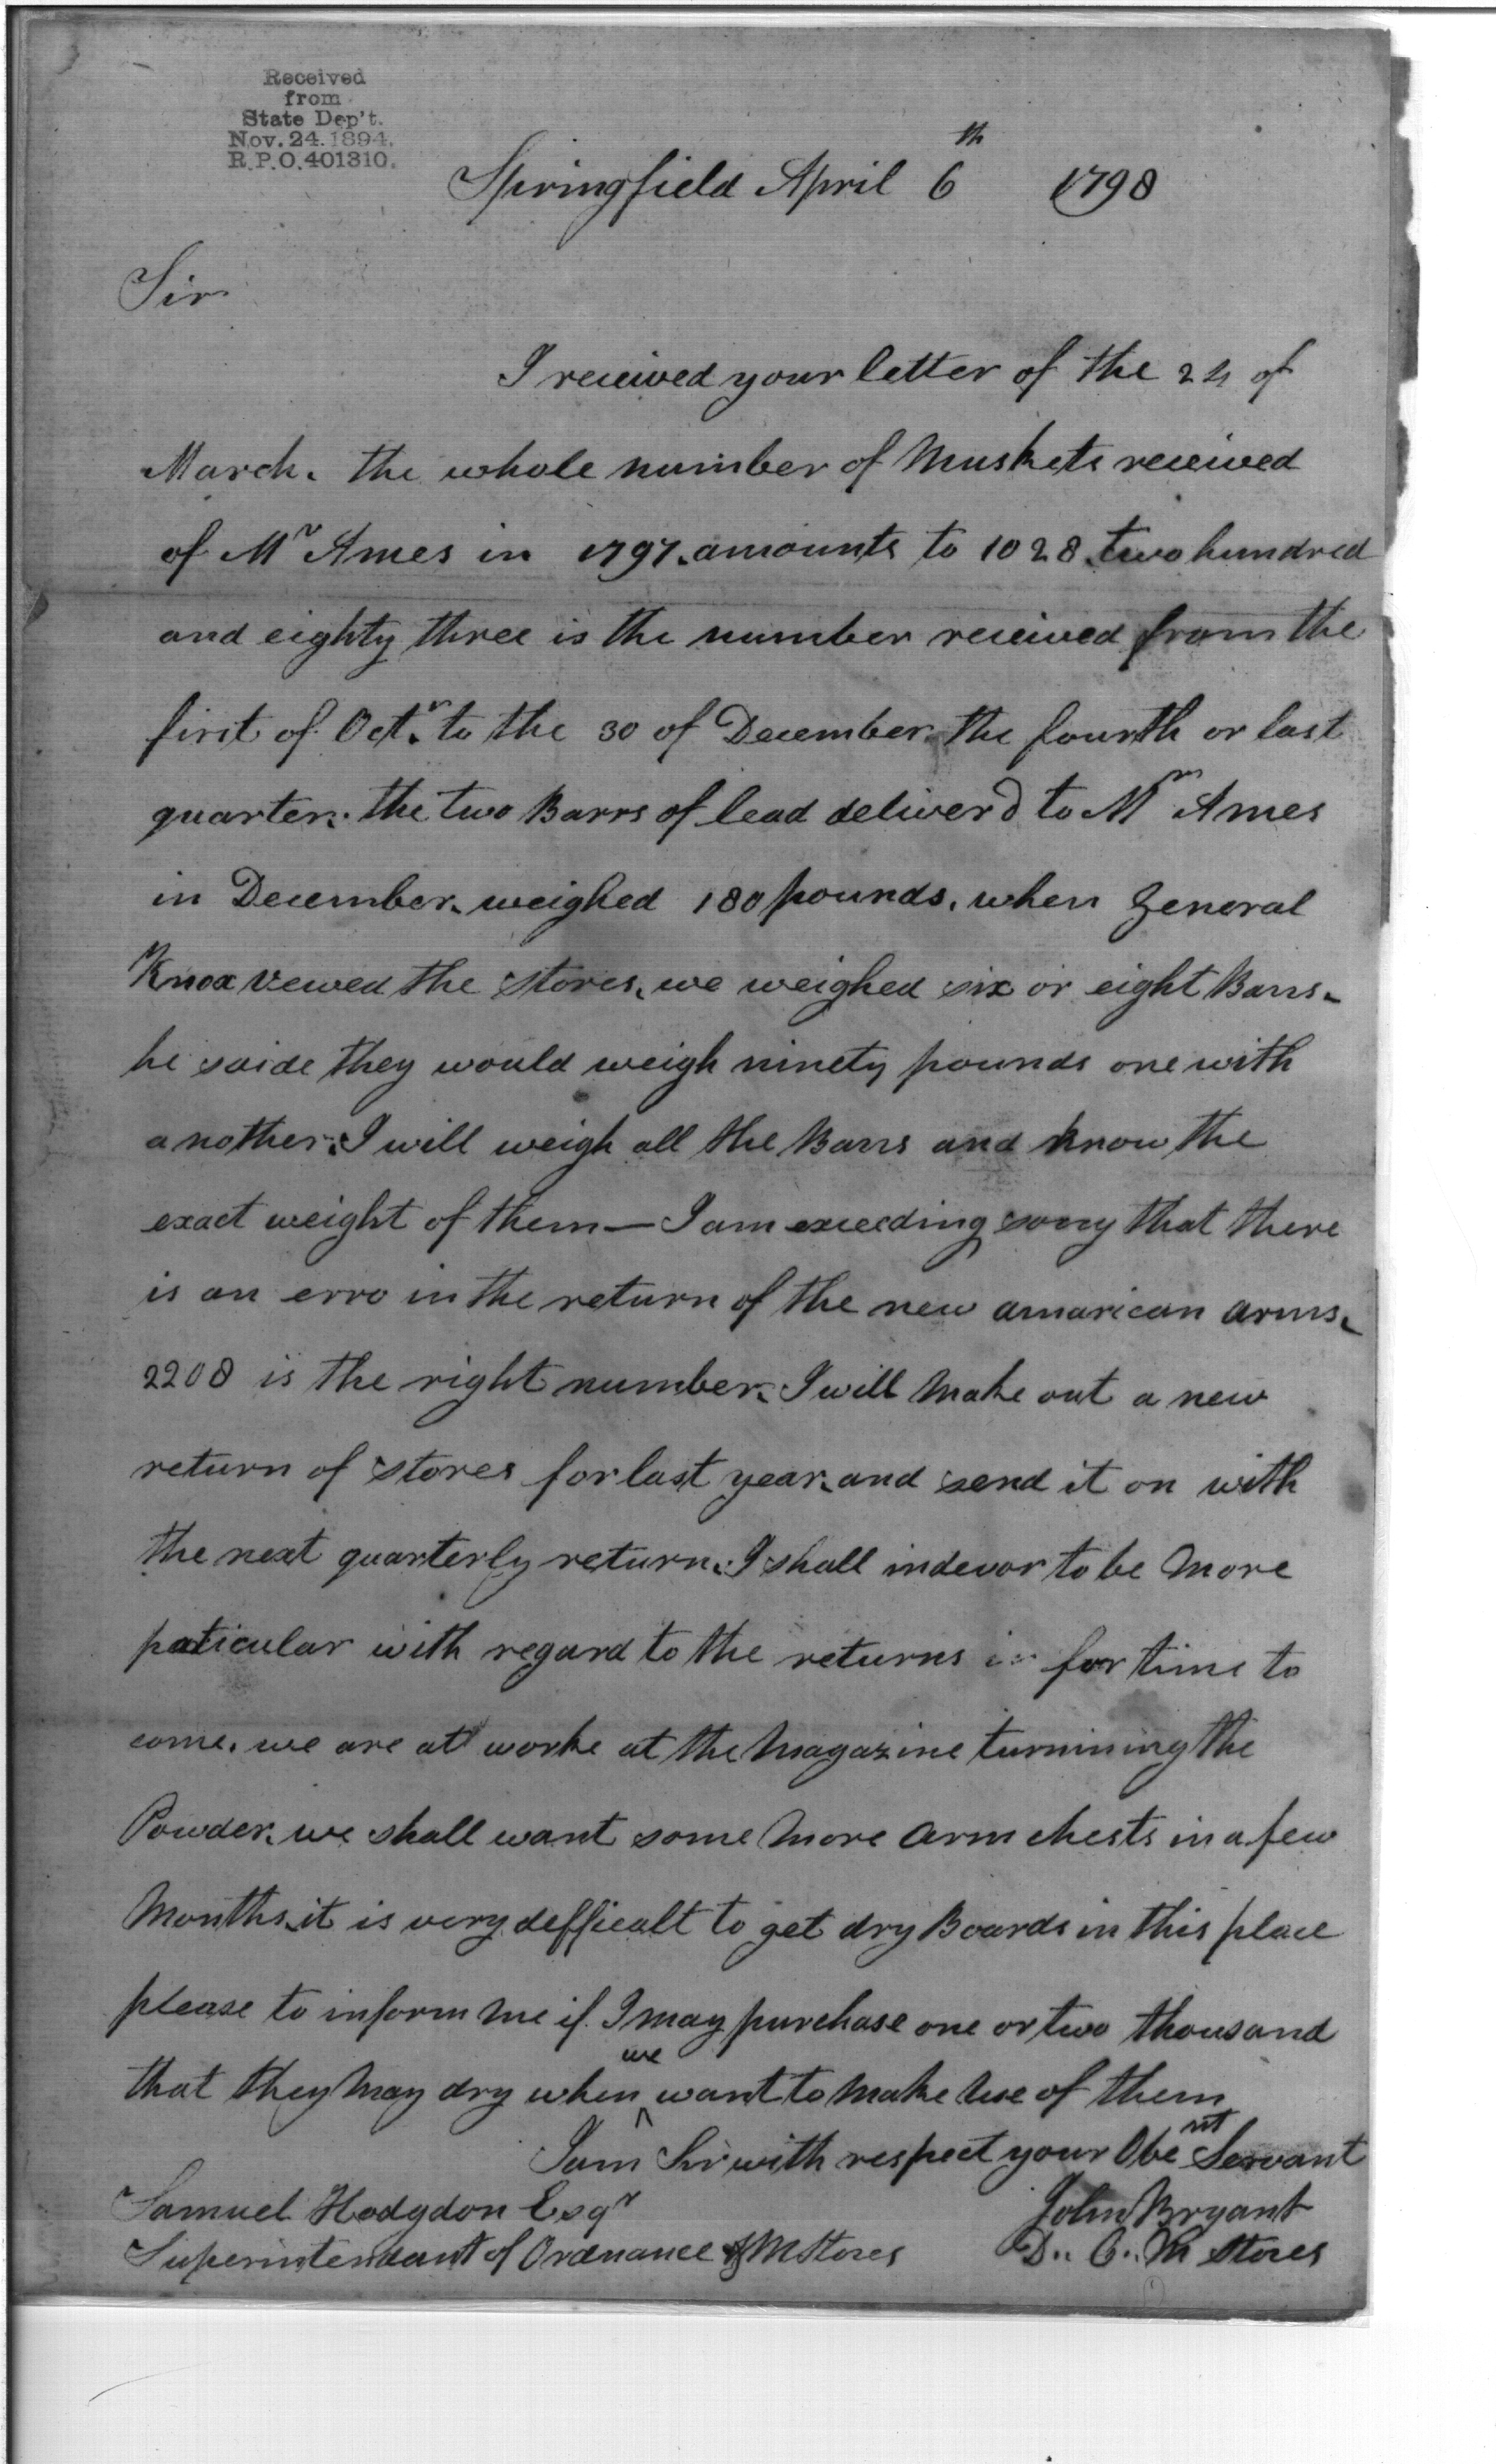 Received
from
State Dep't.
Nov. 24. 1894.
R.P.O. 401310.
Springfield April 6th 1798
Sir
I received your letter of the 24 of
March. the whole number of Muskets received
of Mr Ames in 1797. amounts to 1028. two hundred
and eighty three is the number received from the
first of Octr. to the 30 of December. the fourth or last
quarter. the two Barrs of lead deliverd to Mr Ames
in December. weighed 180 pounds. when General
Knox vewed the stores. we weighed six or eight Barrs.
he saide they would weigh ninety pounds one with
another. I will weigh all the Barrs and know the
exact weight of them — I am exceeding sorry that there
is an erro in the return of the new amarican arms.
2208 is the right number. I will Make out a new
return of stores for last year. and send it on with
the next quarterly return. I shall indevor to be More
paticular with regard to the returns for time to
come. we are at worke at the Magazine turnining the
Powder. we shall want some More arm chests in a few
Months. it is very defficalt to get dry Boards in this place
please to inform Me if I may purchase one or two thousand
that they May dry when we want to Make Use of them
I am Sir with respect your Obent Servant
Samuel Hodgdon Esqr John Bryant
Superintendant of Ordnance & M Stores D.. C.. M Stores